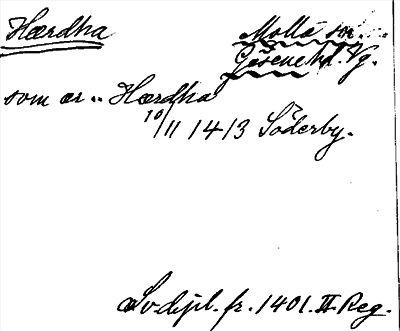 Hærdha
Molla sn.
Gäsene hd. Vg.
som ær „ Hærdha
10/11 1413 Söderby.
Sv. dipl. fr. 1401. II. Reg.